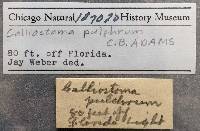 Chicago Natural 187020 History Museum
Calliostoma pulchrum
C.B. ADAMS
80 ft. off Florida.
Jay Weber ded.
Calliostoma
pulchrum
80 feet off
Florida